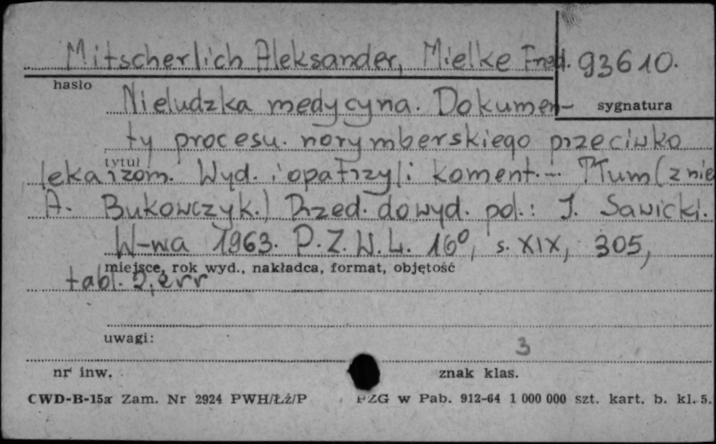 Mitscherlich Aleksander, Mielke Fred. 93610.
hasło
sygnatura
Nieludzka medycyna. Dokumen-
ty procesu norymberskiego przeciwko
tytuł
lekarzom. Wyd. i opatrzyli koment. — Tłum (z nie
A. Bukowczyk.) Przed. do wyd. pol.: J. Sawicki.
W-wa 1963. P.Z.W.L. 16°, s. XIX, 305,
miejsce, rok wyd., nakładca, format, objętość
tabl. 2, err
uwagi:
3
nr inw.
znak klas.
CWD-B-15a Zam. Nr 2924 PWH/Łż/P PZG w Pab. 912-64 1 000 000 szt. kart. b. kl. 5.